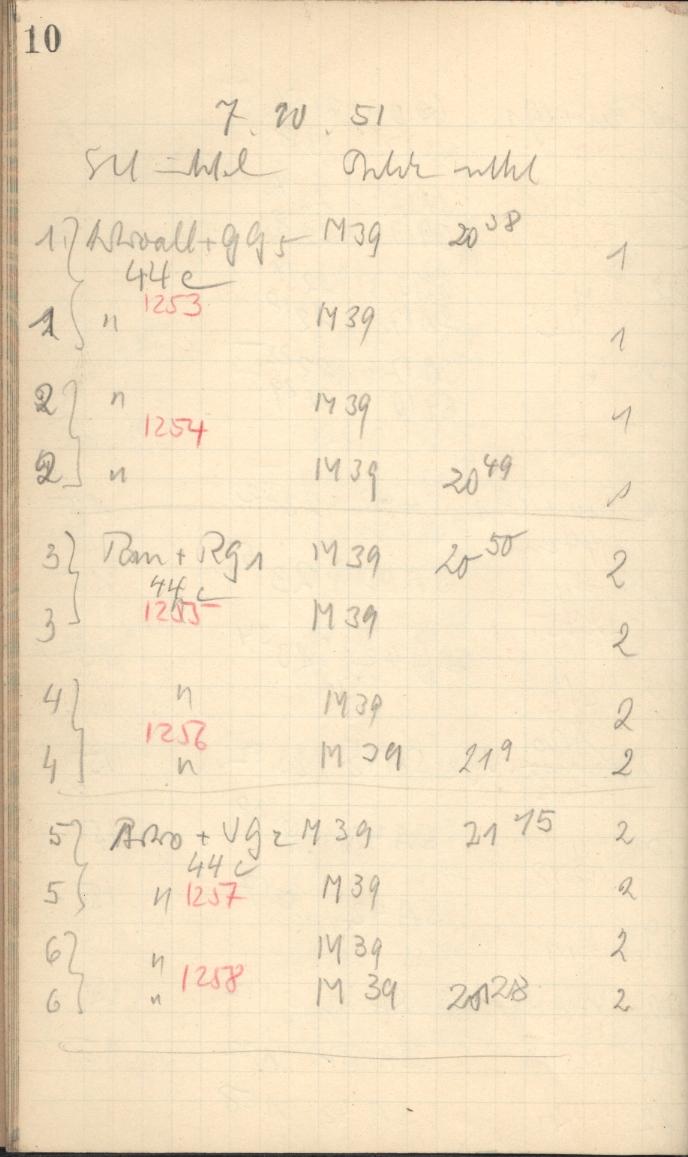 10
7. 10. 51
1. + GG5 M39 20 38 1
44 c
1253
1 n M39 1
2 n M39 1
1254
2 n M39 20 49 1
3 + RG1 M39 20 50 2
44 c
1255
3 M39 2
4 n M39 2
1256
4 n M39 21 9 2
5 + VG2 M39 21 15 2
44 c
5 n 1257 M39 2
6 n M39 2
1258
6 n M39 2128 2